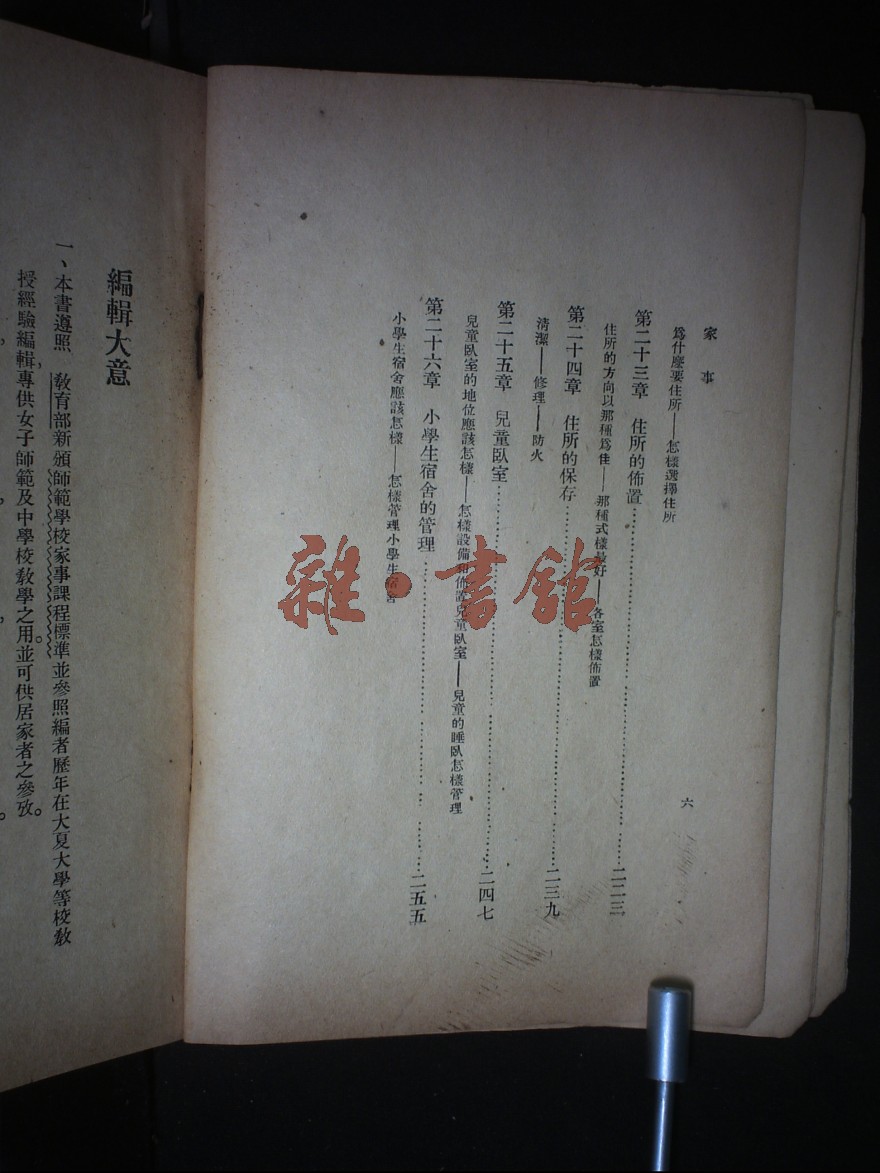 家事
六
爲什麽要住所——怎樣選擇住所
第二十三章 住所的佈置……二二三
住所的方向以那種爲佳——那種式樣最好——各室怎樣佈置
第二十四章 住所的保存……二三九
清潔——修理——防火
第二十五章 兒童臥室……二四七
兒童臥室的地位應該怎樣——怎樣設備和佈置兒童臥室——兒童的睡臥怎樣管理
第二十六章 小學生宿舍的管理……二五五
小學生宿舍應該怎樣——怎樣管理小學生宿舍
編輯大意
一、本書遵照 教育部新頒師範學校家事課程標準並參照編者歷年在大夏大學等校教
授經驗編輯，專供女子師範及中學校教學之用。並可供居家者之參攷。
雜·書館